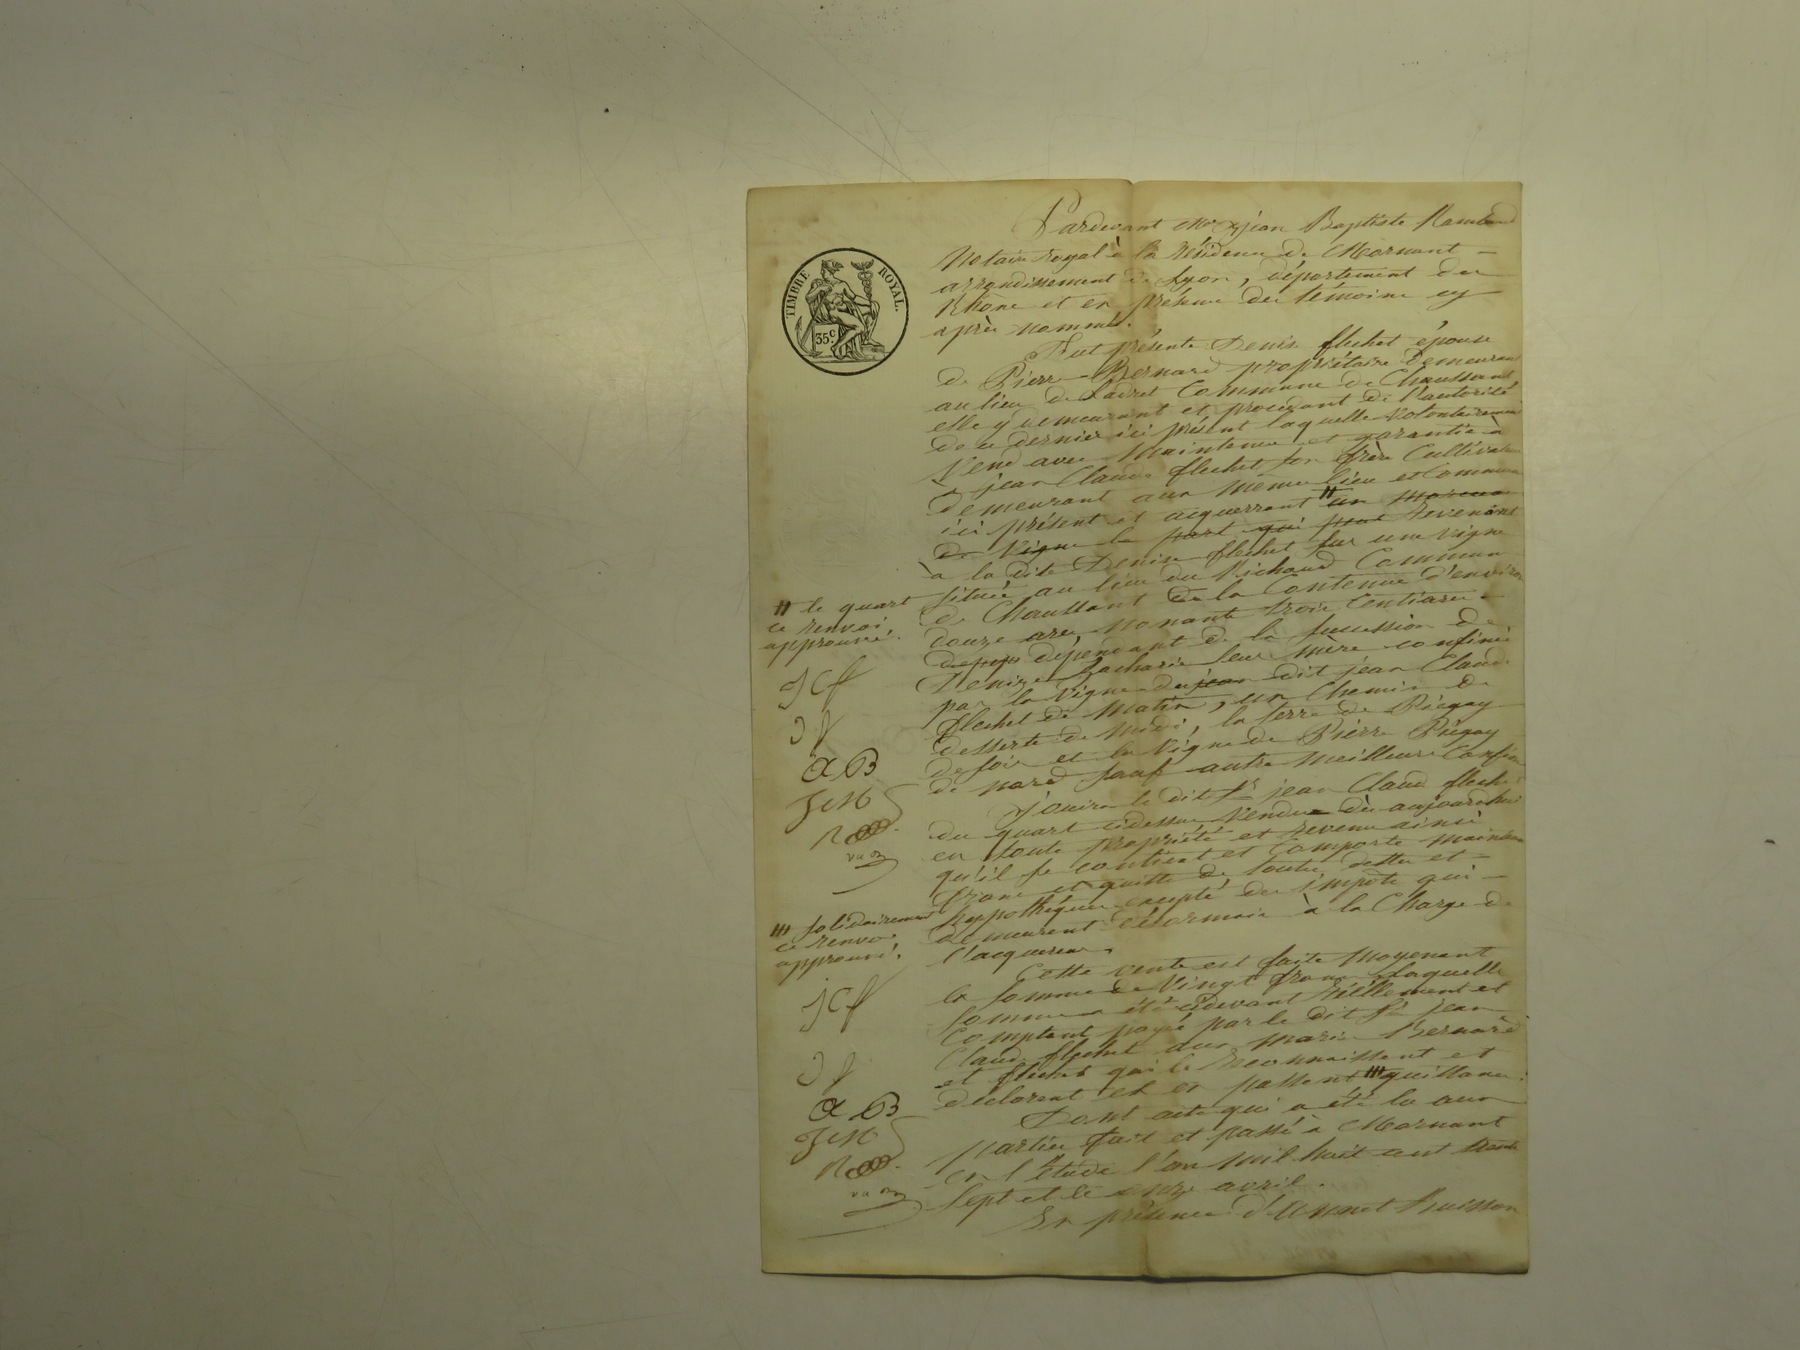 TIMBRE ROYAL.
35c
Pardevant Me Jean Baptiste Rambaud
Notaire royal à la résidence de Mornant
arrondissement de Lyon, département du
Rhône et en présence des témoins cy
après nommés.
Fut présente Denise flechet épouse
de Pierre Bernard propriétaire demeurant
au lieu de Commune de Chaussant
elle y demeurant et procédant de l'autorité
de ce dernier ici présent laquelle volontairement
Vend avec Maintenue et garantie à
à jean Claude flechet son frère Cultivateur
demeurant aux meme lieu et Commune
ici présent et acquerrant # un morceau
de Vigne la part qui peut Revenant
à la dite Denise flechet sur une vigne
située au lieu du Richaud Commune
de Chaussant de la Contenue d'environ
douze ares nonante trois Centiares
dépendant de la succession de
Denise Zacharie leur mère confinée
par la Vigne du jean dit jean Claude
flechet de Matin, un Chemin de
desserte de midi, la terre de Piégay
de soir et la Vigne de Pierre Piégay
de nord sauf autre meilleure Confins
Jouira le dit Sr jean Claude flechet
du quart cidessus Vendu dès aujourdhui
en toute propriété et revenu ainsi
qu'il se contient et Comporte maintenu
franc et quitte de toute dettes et
hyppothéques excepté des impots qui
demeurent désormais à la Charge de
l'acquereur.
Cette vente est faite Moyenant
la Somme de Vingt francs laquelle
Somme a été cidevant réellement et
Comptant payée par le dit Sr jean
Claude flechet aux mariés Bernard
et flechet qui le reconnaissent et
déclarent et en passent ## quittance.
Dont acte qui a été lu aux
parties fait et passé à Mornant
en l'étude l'an mil huit cent trente
Sept et le onze avril.
En présence d'Annet Buisson
# le quart
ce renvoi
approuvé.
J C f
D f
A B
## solidairement
ce renvoi
approuvé.
j C f
D f
A B